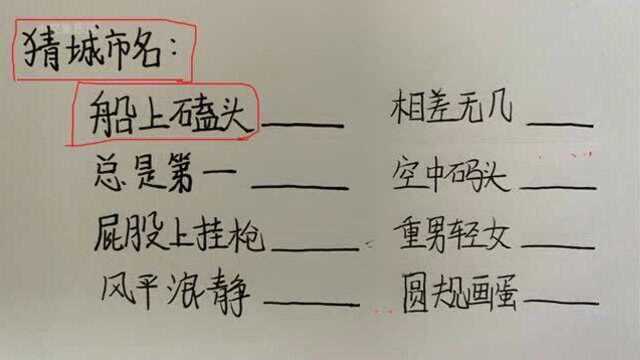 猜城市名：
船上磕头 相差无几
总是第一 空中码头
屁股上挂枪 重男轻女
风平浪静 圆规画蛋